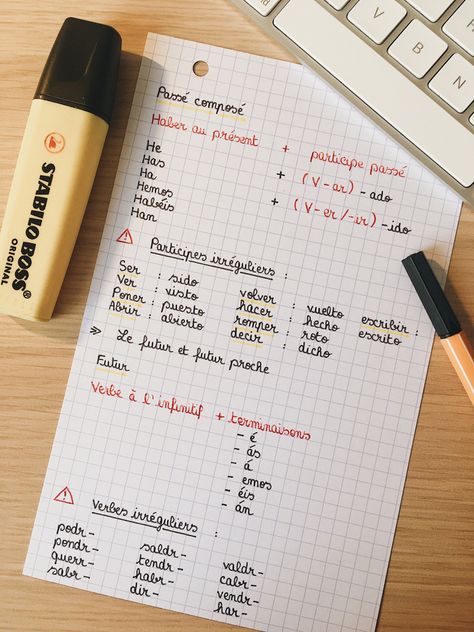 STABILO BOSS
ORIGINAL
V B N
Passé composé
Haber au présent + participe passé
He
Has
Ha + (V-ar) - ado
Hemos
Habéis + (V-er/-ir) - ido
Han
Participes irréguliers :
Ser : sido
Ver : visto
Poner : puesto
Abrir : abierto
volver : vuelto
hacer : hecho
romper : roto
decir : dicho
escribir : escrito
Le futur et futur proche
Futur
Verbe à l'infinitif + terminaisons
- é
- ás
- á
- emos
- éis
- án
Verbes irréguliers :
podr-
pondr-
querr-
sabr-
saldr-
tendr-
habr-
dir-
valdr-
cabr-
vendr-
har-